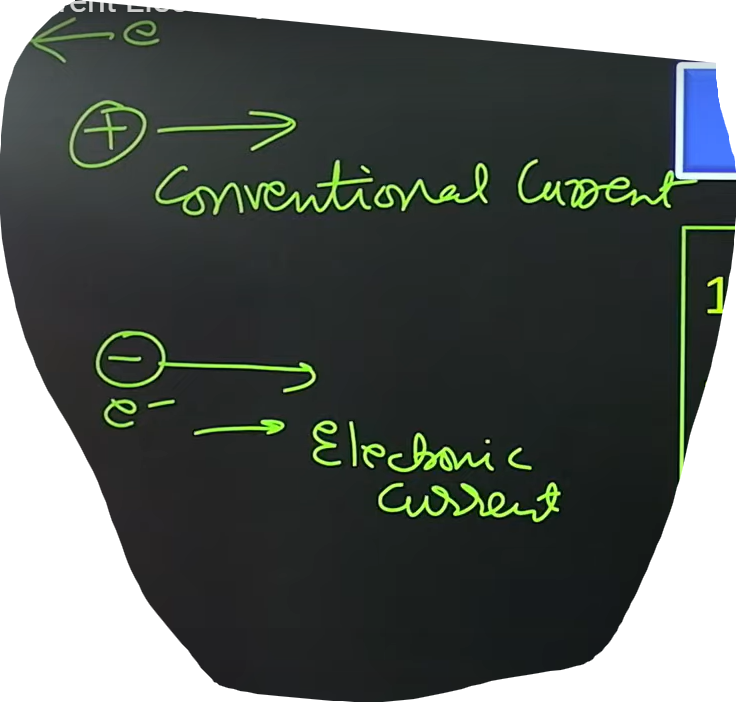 e
+
Conventional Current
1
−
e−
Electronic
Current